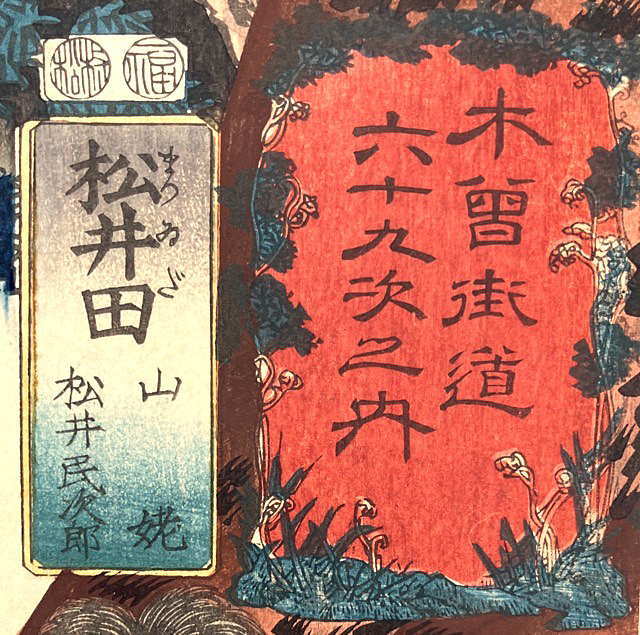 木曽街道
六十九次之内
松井田
まつゐだ
山姥
松井民次郎
福